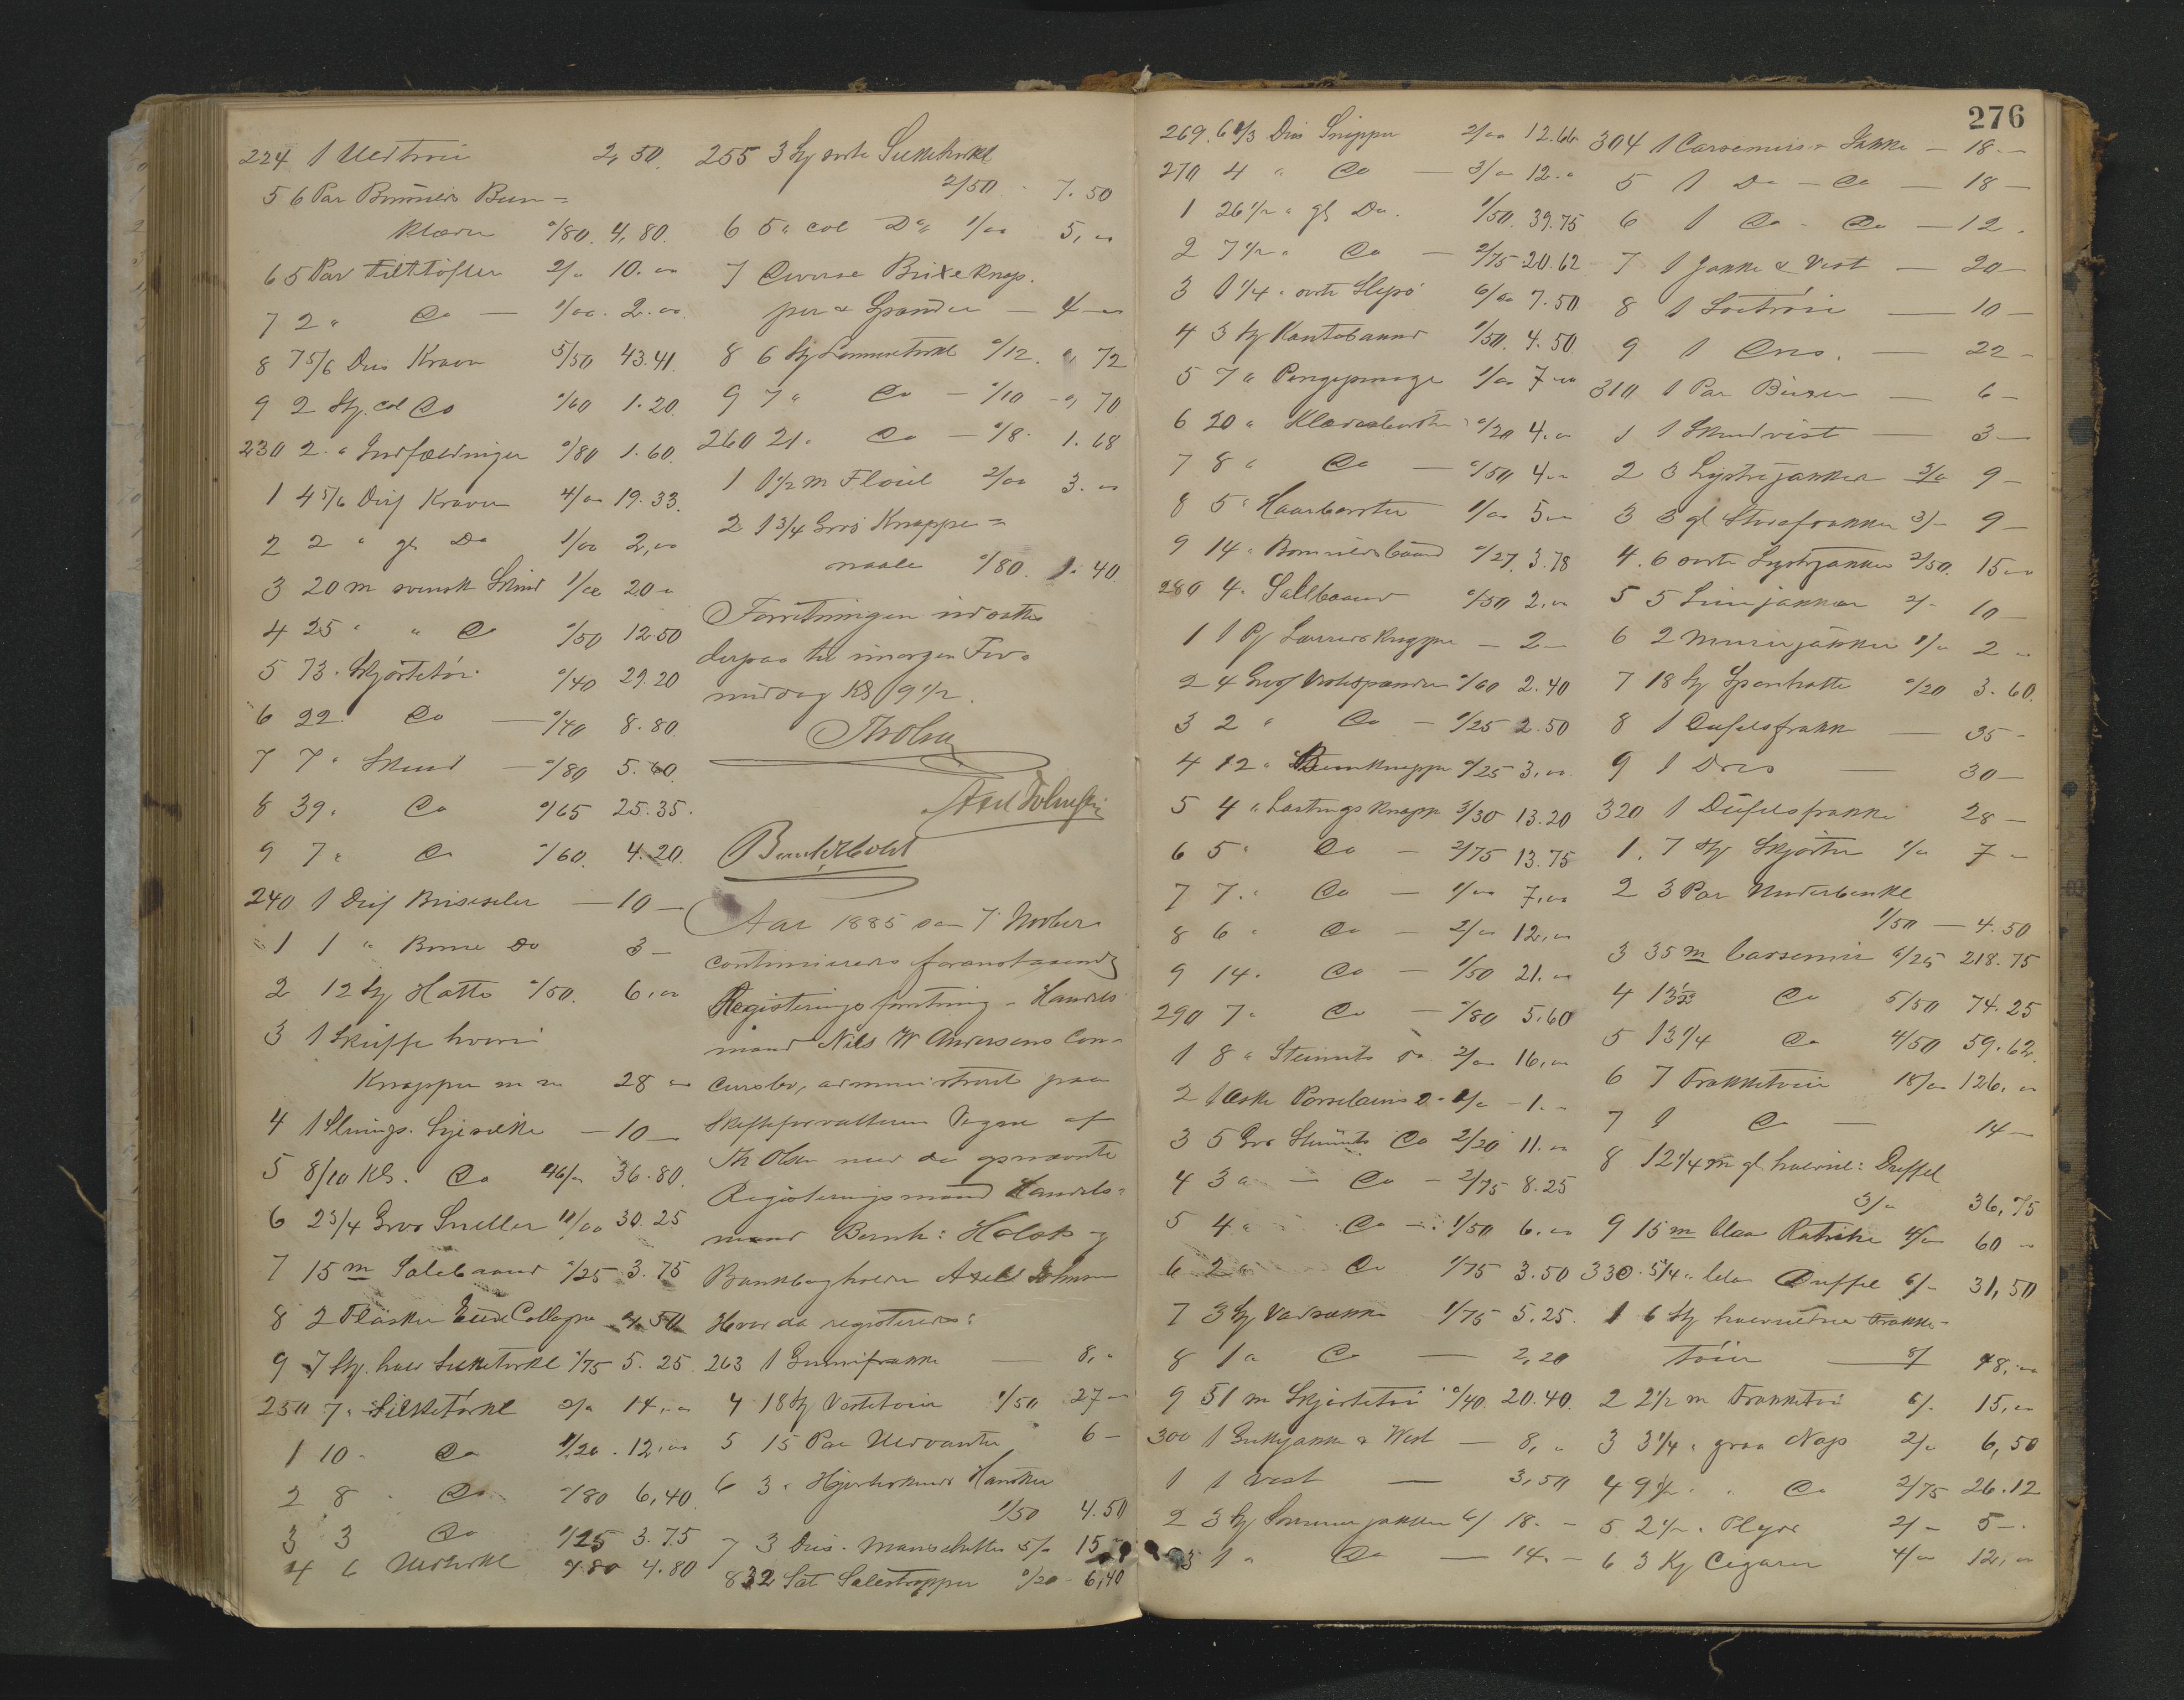 224 1 Uldtröie 2,50
5 6 Par Bomuls Ben=
klæder 0/80. 4,80.
6 5 Par Filttöfler 2/" 10.00
7 2 " Do — 1/00. 2.00.
8 7 5/6 Dus Kraver 5/50 43.41.
9 2 Stk. col Do 0/60 1.20.
230 2 " Indfældninger 0/80 1.60.
1 4 5/6 Dus Kraver 4/00 19.33.
2 2 " gl Do 1/00 2,00
3 20 m svensk Skind 1/00 20 "
4 25 " " Do 0/50 12.50
5 73 " Skjortetöi 0/40 29.20
6 22 " Do — 0/40 8.80.
7 7 " Skind — 0/80 5.60.
8 39 " Do 0/65 25.35.
9 7 " Do 0/60. 4.20.
240 1 Dus Buxeseler — 10 —
1 1 " Börne Do 3 —
2 12 Stk Hatte 0/50. 6,00
3 1 Skuffe hvori
Knapper m m 28 "
4 1 Slump. Sysilke — 10 —
5 8/10 Kg. Do 46/" 36.80.
6 2 3/4 Gros Sneller 11/00 30.25
7 15 m Salebaand 0/25 3.75
8 2 Flasker Eau de Cologne 4,50
9 7 Stk. halv Silketörkl 0/75 5.25
250 7 " Silketörkl 2/" 14,00
1 10 " Do 1/20. 12,00
2 8 " Do 0/80 6,40
3 3 Do 1/25 3.75
4 6 Uldtörkl 0/80 4.80
255 3 Stk sorte Silketörkl
2/50 7.50
6 5 " col Do 1/00 5,00
7 Diverse Buxeknap.
per & Spænder — 4 —
8 6 Stk Lommetörkl 0/12. 0,72
9 7 " Do — 0/10 — 0,70
260 21 " Do — 0/8. 1.68
1 1 1/2 m Flöiel 2/00 3.00
2 1 3/4 Gros Knappe=
naale 0/80. 1.40.
Forretningen udsattes
derpaa til imorgen For=
middag Kl 9 1/2.
Th Olsen
Axel Johnsen
Bernh Holst
Aar 1885 den 7 Novber
continueredes foranstaaende
Registeringsforretning i Handels
mand Nils W Andersens Con=
cursbo, administreret paa
Skifteforvalterens Vegne af
Th Olsen med de opnævnte
Registeringsmænd Handels=
mand Bernh: Holst og
Bankbogholder Axel Johnsen
Hvor da registeredes:
263 1 Gummifrakke — 8,"
4 18 Stk Vestetöier 1/50 27 —
5 15 Par Uldvanter 6 —
6 3 " Hjorteskinds Hansker
1/50 4.50
7 3 Dus. Manschetter 5/" 15 —
8 32 Sæt Selestropper 0/20 6,40
276
269. 6 1/3 Dus Snipper 2/00 12.66
270 4 " Do — 3/" 12."
1 26 1/2 " gl Do. 1/50. 39.75
2 7 1/2 " Do — 2/75 20.62
3 1 1/4 " sorte Slips 6/00 7.50
4 3 Stk Kantebaand 1/50. 4.50
5 7 " Pengepunge 1/00 7 "
6 20 " Klædesbörster 0/20 4."
7 8 " Do — 0/50 4 "
8 5 " Haarbörster 1/00 5 "
9 14 " Bomuldsbaand 0/27. 3.78
280 4 " Sallbaand 0/50 2,00
1 1 P. Lærredsknapper — 2 —
2 4 Gros Vestspænder 0/60 2.40
3 2 " Do — 1/25 2.50
4 12 " Benknapper 0/25 3,00
5 4 " Lastingsknapp 3/30 13.20
6 5 " Do — 2/75 13.75
7 7 " Do — 1/00 7,00
8 6 " Do — 2/00 12,00
9 14 " Do — 1/50 21.00
290 7 " Do — 0/80 5.60
1 8 " Steinnuts Do 2/00 16,00
2 1 Æske Porcelains D 1/" — 1.—
3 5 Gros Steinnuts Do 2/20 11.00
4 3 " — Do — 2/75 8.25
5 4 " Do — 1/50 6.00
6 2 " Do 1/75 3.50
7 3 Stk Vadsække 1/75 5.25.
8 1 " Do — 2,20
9 51 m Skjortetöi 0/40. 20.40.
300 1 Bukjakke & Vest — 8,"
1 1 Vest — 3,50
2 3 Stk Sommerjakker 6/ 18.—
3 1 " Do — 14.—
304 1 Carsemirs Jakke — 18 —
5 1 Do — Do — 18 —
6 1 Do " Do — 12.
7 1 Jakke & Vest — 20 —
8 1 Söetröie — 10 —
9 1 Dres. — 22 —
310 1 Par Buxer — 6 —
1 1 Skindvest — 3 —
2 3 Lystrejakker 3/" 9 —
3 3 gl Storefrakker 3/— 9 —
4. 6 sorte Lystrjakker 2/50. 15 "
5 5 Linjakker 2/— 10 —
6 2 Murerjakker 1/" 2 "
7 18 Stk Spanhatte 0/20 3.60.
8 1 Düffelsfrakke — 35 —
9 1 Dres — 30 —
320 1 Düffelsfrakke 28 —
1. 7 Stk Skjorter 1/" 7 "
2 3 Par Underbenkl
1/50 — 4.50
3 35 m Carsemir 6/25 218.75
4 13 1/2 Do 5/50 74.25
5 13 1/4 Do 4/50 59.62.
6 7 Frakketöier 18/00 126,00
7 1 Do — 14 —
8 12 1/4 m gl halvuld: Duffel
3/" 36,75
9 15 m blaa Ratiné 4/" 60 "
330. 5 1/4 " blaa Duffel 6/— 31,50
1 6 Stk halvuldne Frakke-
töier — 8/ 48,00
2 2 1/2 m Frakketöi 6/. 15,00
3 3 1/4 " graa Nap 2/" 6,50
4 9 1/2 " " Do 2/75 26.12
5. 2 1/2 " Plyds 2/— 5 —.
6 3 Kg Cigarer 4/00 12,00